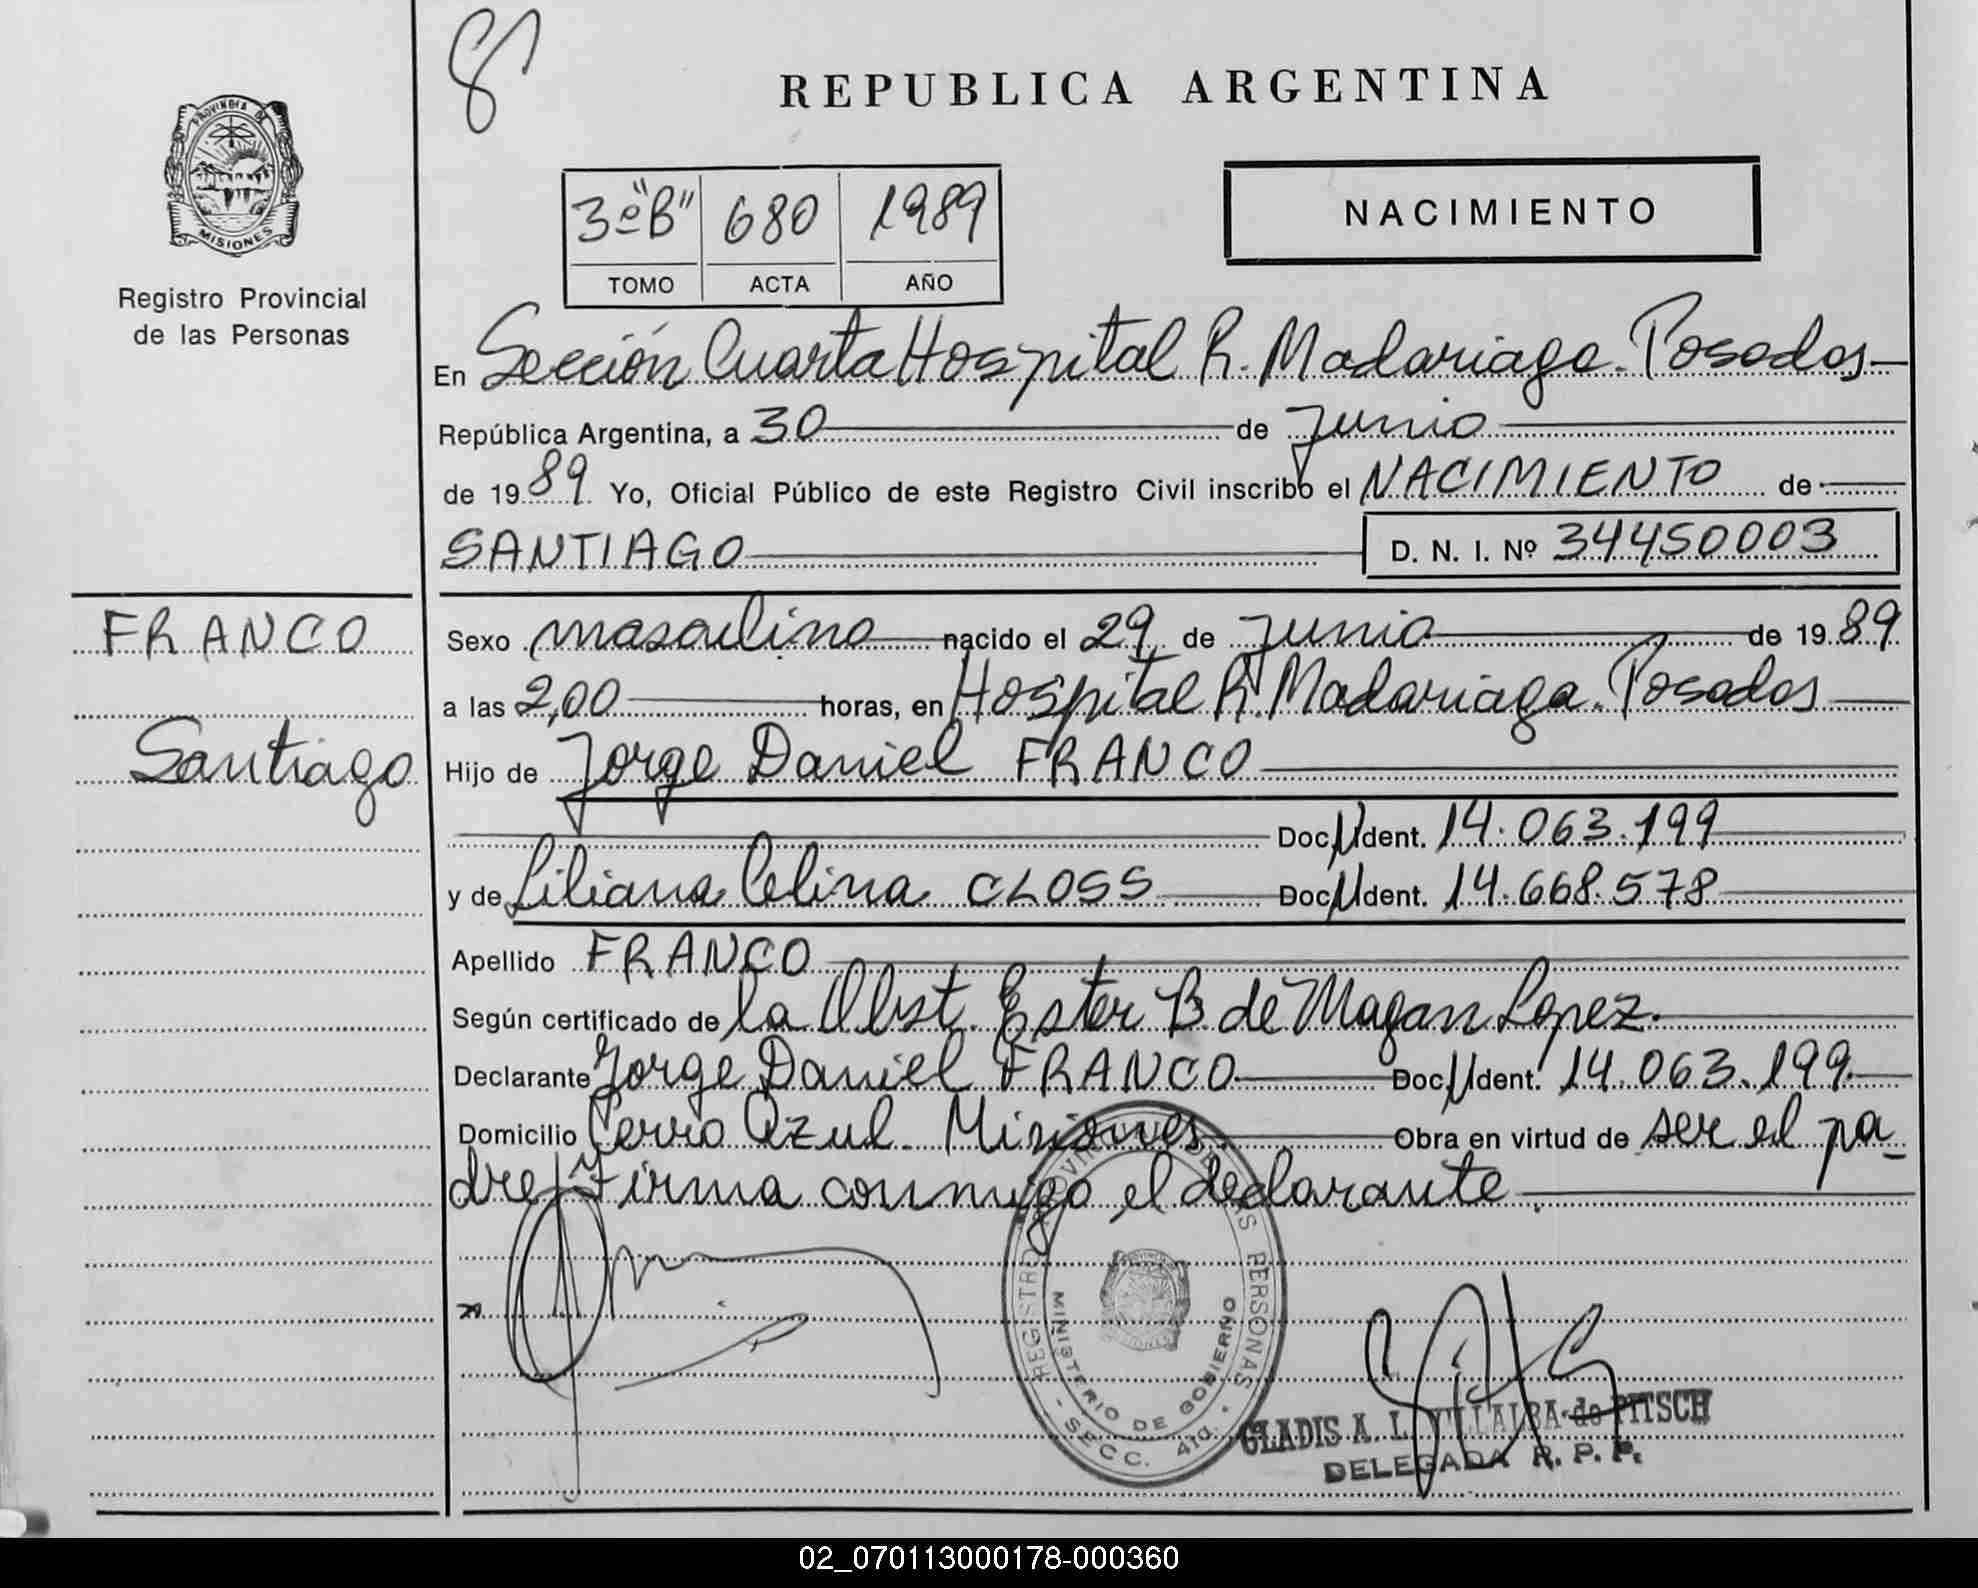 8
REPUBLICA ARGENTINA
PROVINCIA DE
MISIONES
Registro Provincial
de las Personas
3º "B" 680 1989
TOMO ACTA AÑO
NACIMIENTO
En Sección Cuarta Hospital R. Madariaga. Posadas
República Argentina, a 30 de Junio
de 1989 Yo, Oficial Público de este Registro Civil inscribo el NACIMIENTO de
SANTIAGO D. N. I. Nº 34450003
FRANCO
Santiago
Sexo masculino nacido el 29 de Junio de 1989
a las 2,00 horas, en Hospital R. Madariaga. Posadas
Hijo de Jorge Daniel FRANCO
Doc. Ident. 14.063.199
y de Liliana Celina CLOSS Doc. Ident. 14.668.578
Apellido FRANCO
Según certificado de la Obst. Ester B. de Magan Lopez.
Declarante Jorge Daniel FRANCO Doc. Ident. 14.063.199.
Domicilio Cerro Azul. Misiones. Obra en virtud de ser el pa-
dre y firma conmigo el declarante
REGISTRO PROVINCIAL DE LAS PERSONAS
MINISTERIO DE GOBIERNO
- SECC. 4ta. -
GLADIS A. L. VILLALBA de PITSCH
DELEGADA R. P. P.
02_070113000178-000360